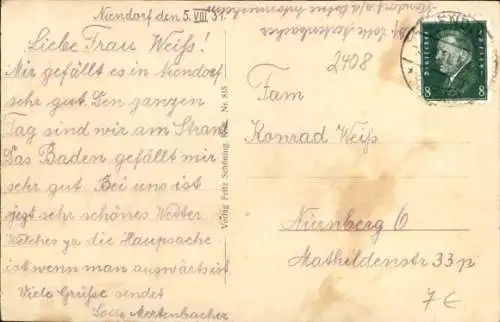 Niendorf den 5. VIII 31.
Liebe Frau Weiß!
Mir gefällt es in Niendorf
sehr gut. Den ganzen
Tag sind wir am Strand
Das Baden gefällt mir
sehr gut. Bei uns ist
jezt sehr schönes Wetter
Welches ja die Haupsache
ist wenn man auswärts ist.
Viele Grüße sendet
Lotte Mertenbacher
Verlag Fritz Schöning, Nr. 815
2408
DEUTSCHES REICH
8 8
Fam
Konrad Weiß
Nürnberg 6
Mathildenstr 33p
7€